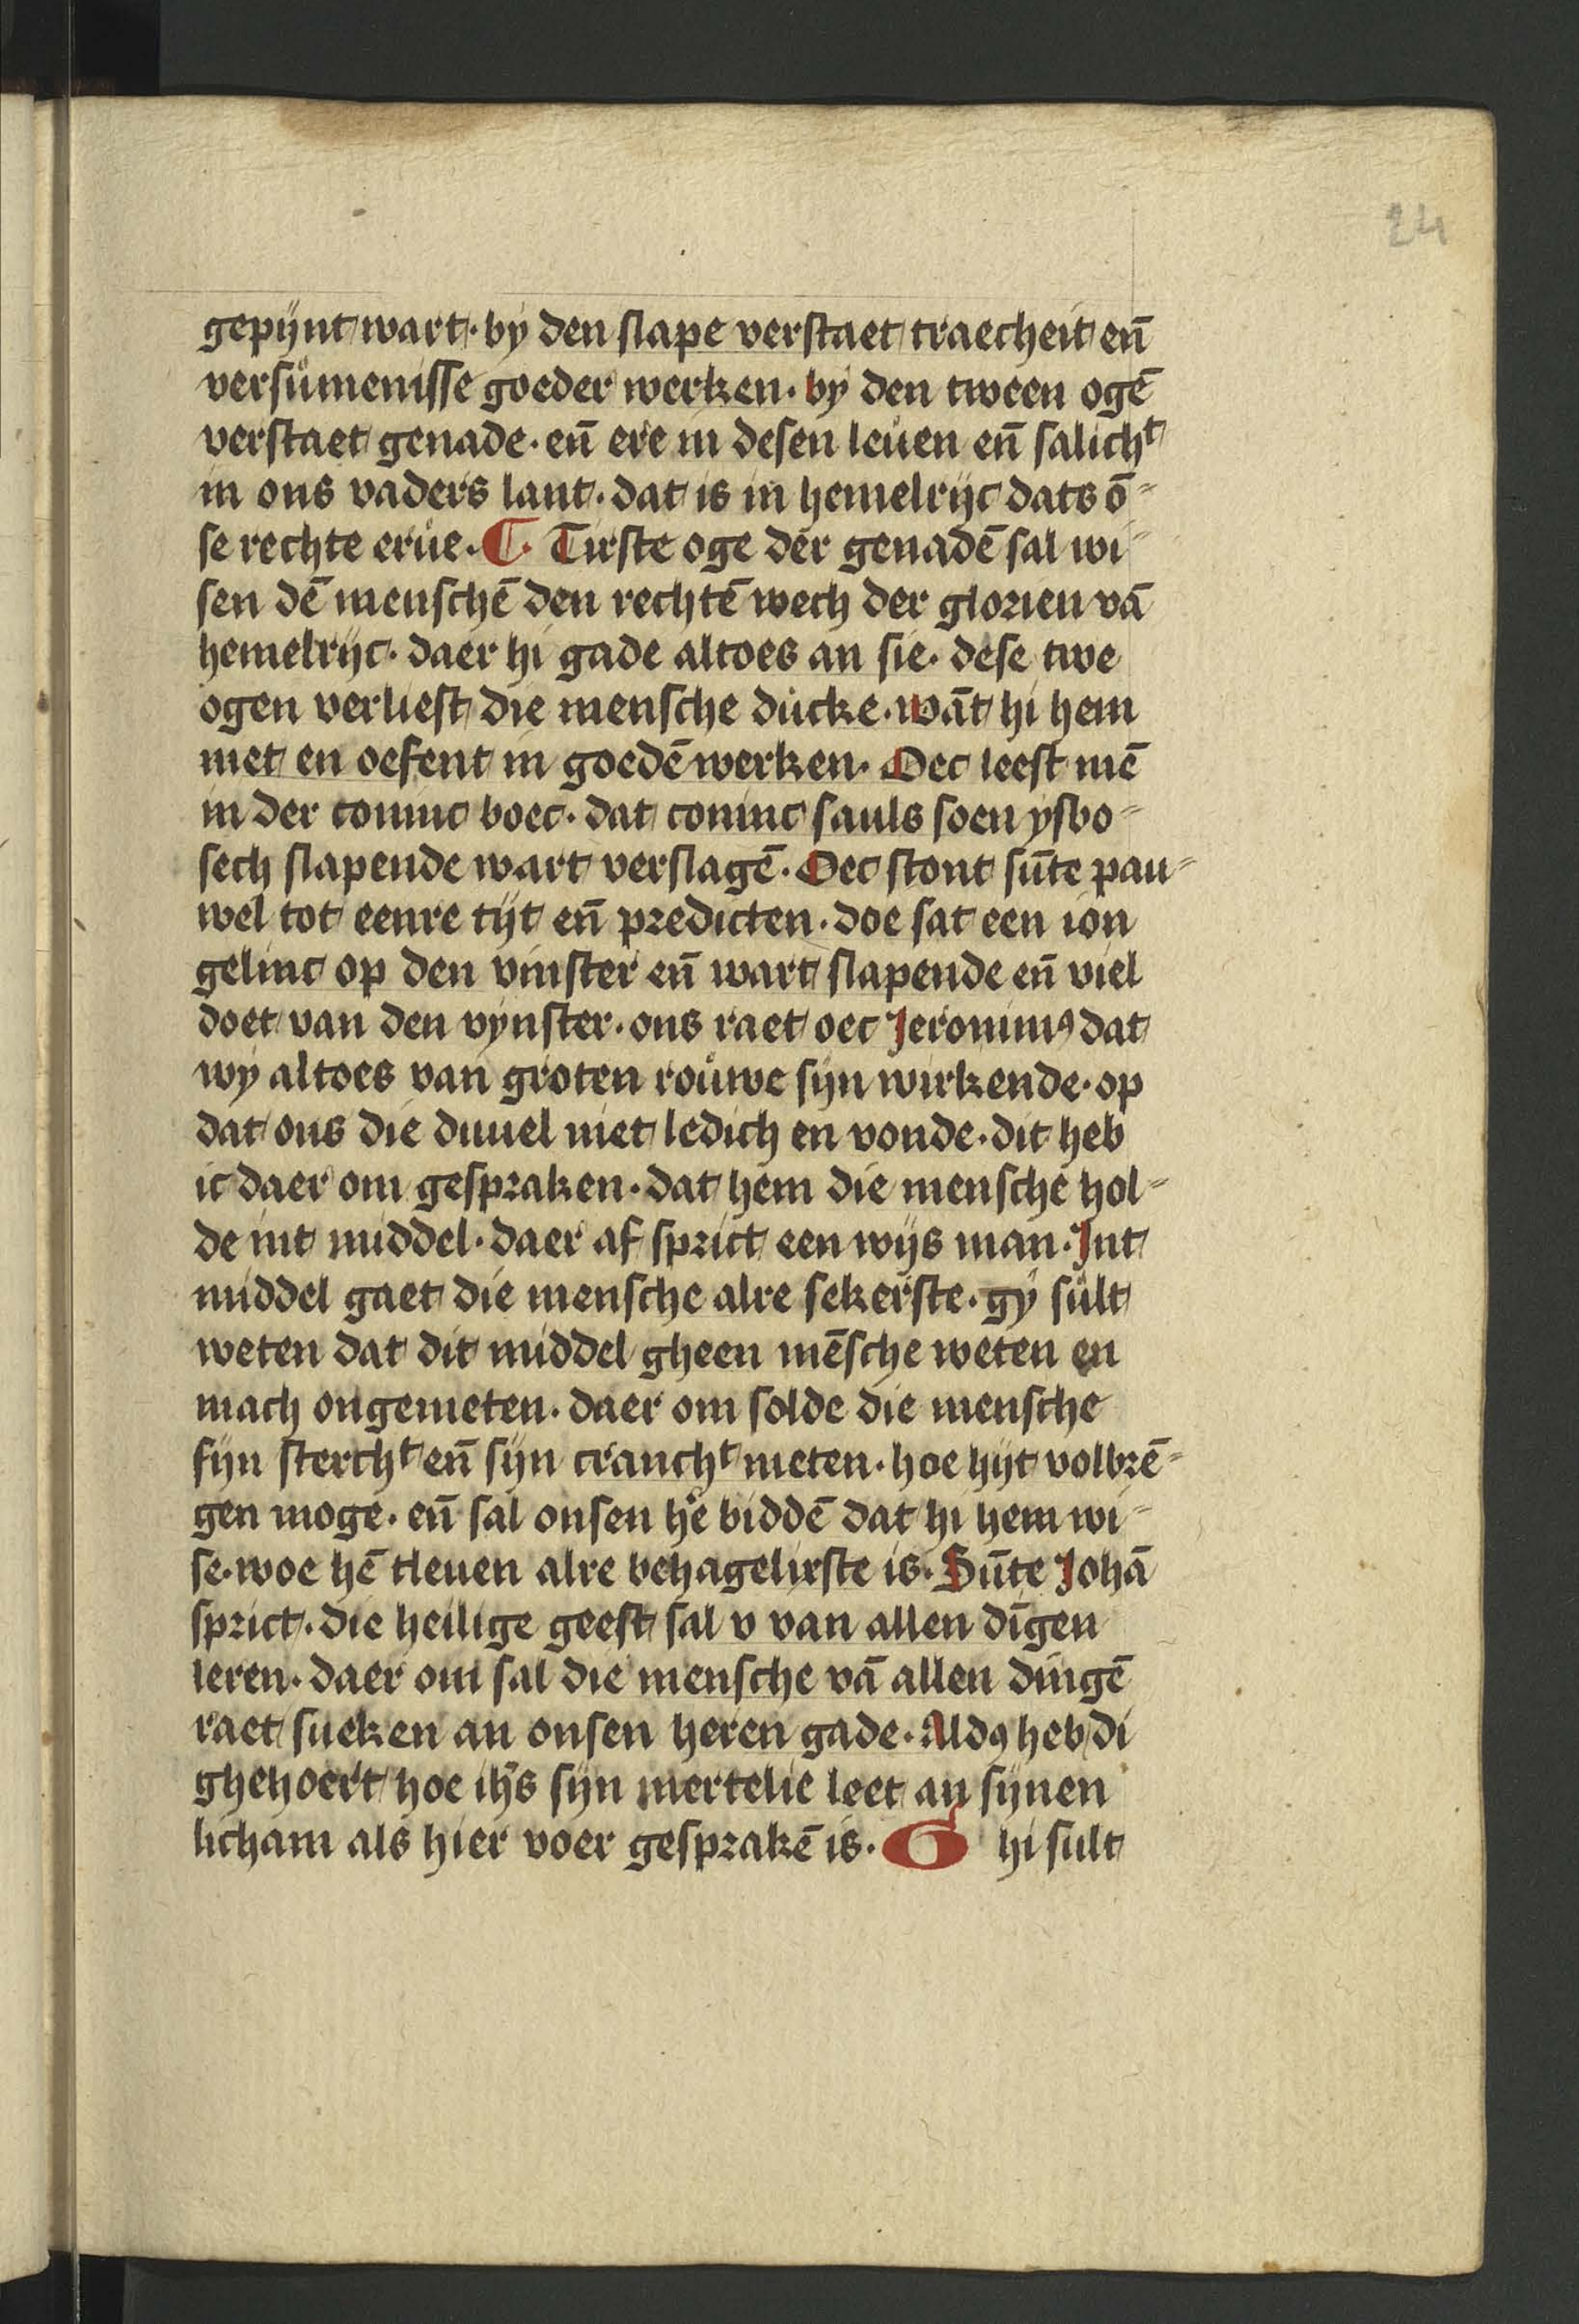 24
gepijnt wart · by den slape verstaet traecheit en̄
versůmenisse goeder werken · by den tween ogē
verstaet genade · en̄ ere in desen leůen en̄ salichᵗ
in ons vaders lant · dat is in hemelrijc dats ō⸗
se rechte erůe · ¶ · Tirste oge der genadē sal wi⸗
sen dē menschē den rechtē wech der glorien vā
hemelrijc · daer hi gade altoes an sie · dese twe
ogen verliest die mensche důcke · wāt hi hem
niet en oefent in goedē werken · Oec leest mē
in der coninc boec · dat coninc sauls soen ysbo⸗
sech slapende wart verslagē · Oec stont sūte pau⸗
wel tot eenre tijt en̄ predicten · doe sat een ion
gelinc op den vinster en̄ wart slapende en̄ viel
doet van den vynster · ons raet oec Jeronimꝰ dat
wy altoes van groten roůwe sijn wirkende · op
dat ons die duuel niet ledich en vonde · dit heb
ic daer om gespraken · dat hem die mensche hol⸗
de int middel · daer af sprict een wijs man · Jnt
middel gaet die mensche alre sekerste · gy sůlt
weten dat dit middel gheen mēsche weten en
mach ongemeten · daer om solde die mensche
sijn sterchᵗ en̄ sijn cranchᵗ meten · hoe hijt volbrē⸗
gen moge · en̄ sal onsen he̊ biddē dat hi hem wi⸗
se · woe hē tleuen alre behagelixste is · Sūte Johā
sprict · die heilige geest sal v van allen dīgen
leren · daer om sal die mensche vā allen dingē
raet sueken an onsen heren gade · Aldꝰ heb di
ghehoert hoe ih̄s sijn mertelie leet an sijnen
licham als hier voer gesprakē is · G hi sult